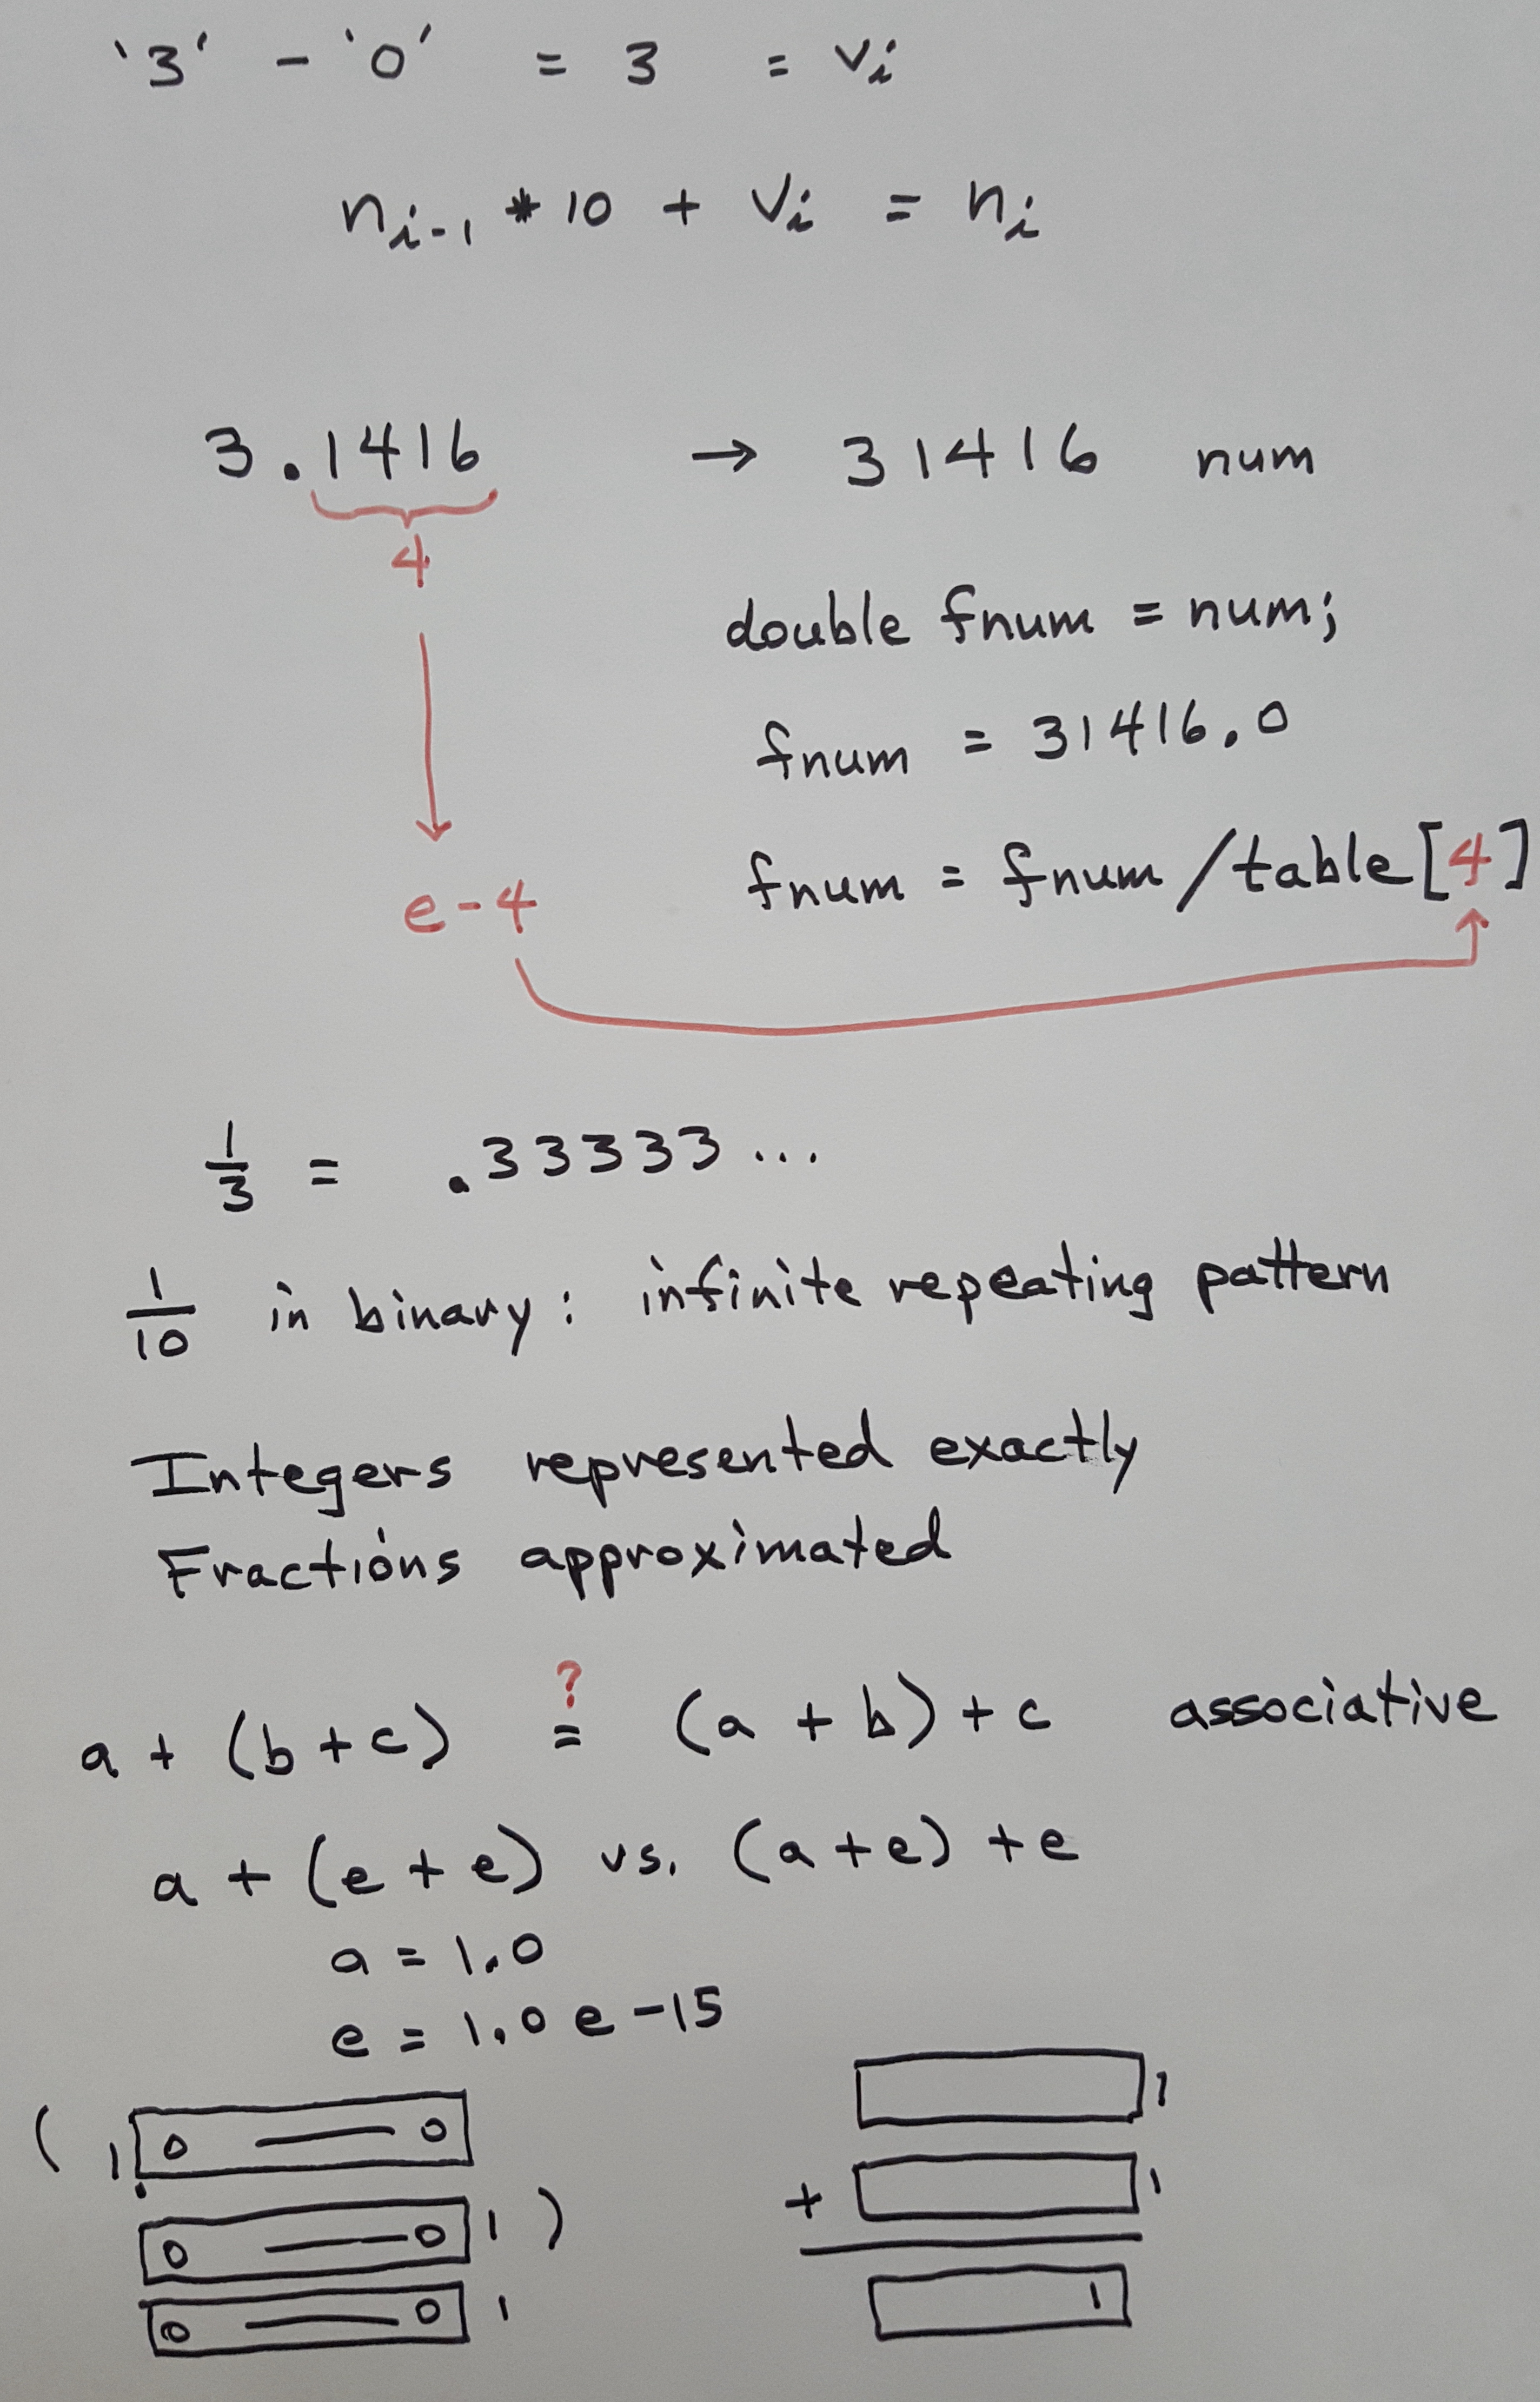 '3' - '0' = 3 = vᵢ
nᵢ₋₁ * 10 + vᵢ = nᵢ
3.1416 → 31416 num
4
double fnum = num;
fnum = 31416.0
e-4 fnum = fnum / table[4]
1/3 = .33333...
1/10 in binary: infinite repeating pattern
Integers represented exactly
Fractions approximated
a + (b + c) ?= (a + b) + c associative
a + (e + e) vs. (a + e) + e
a = 1.0
e = 1.0 e-15
( 1. 0 — 0
0 — 0 1 )
0 — 0 1
1
+ 1
1